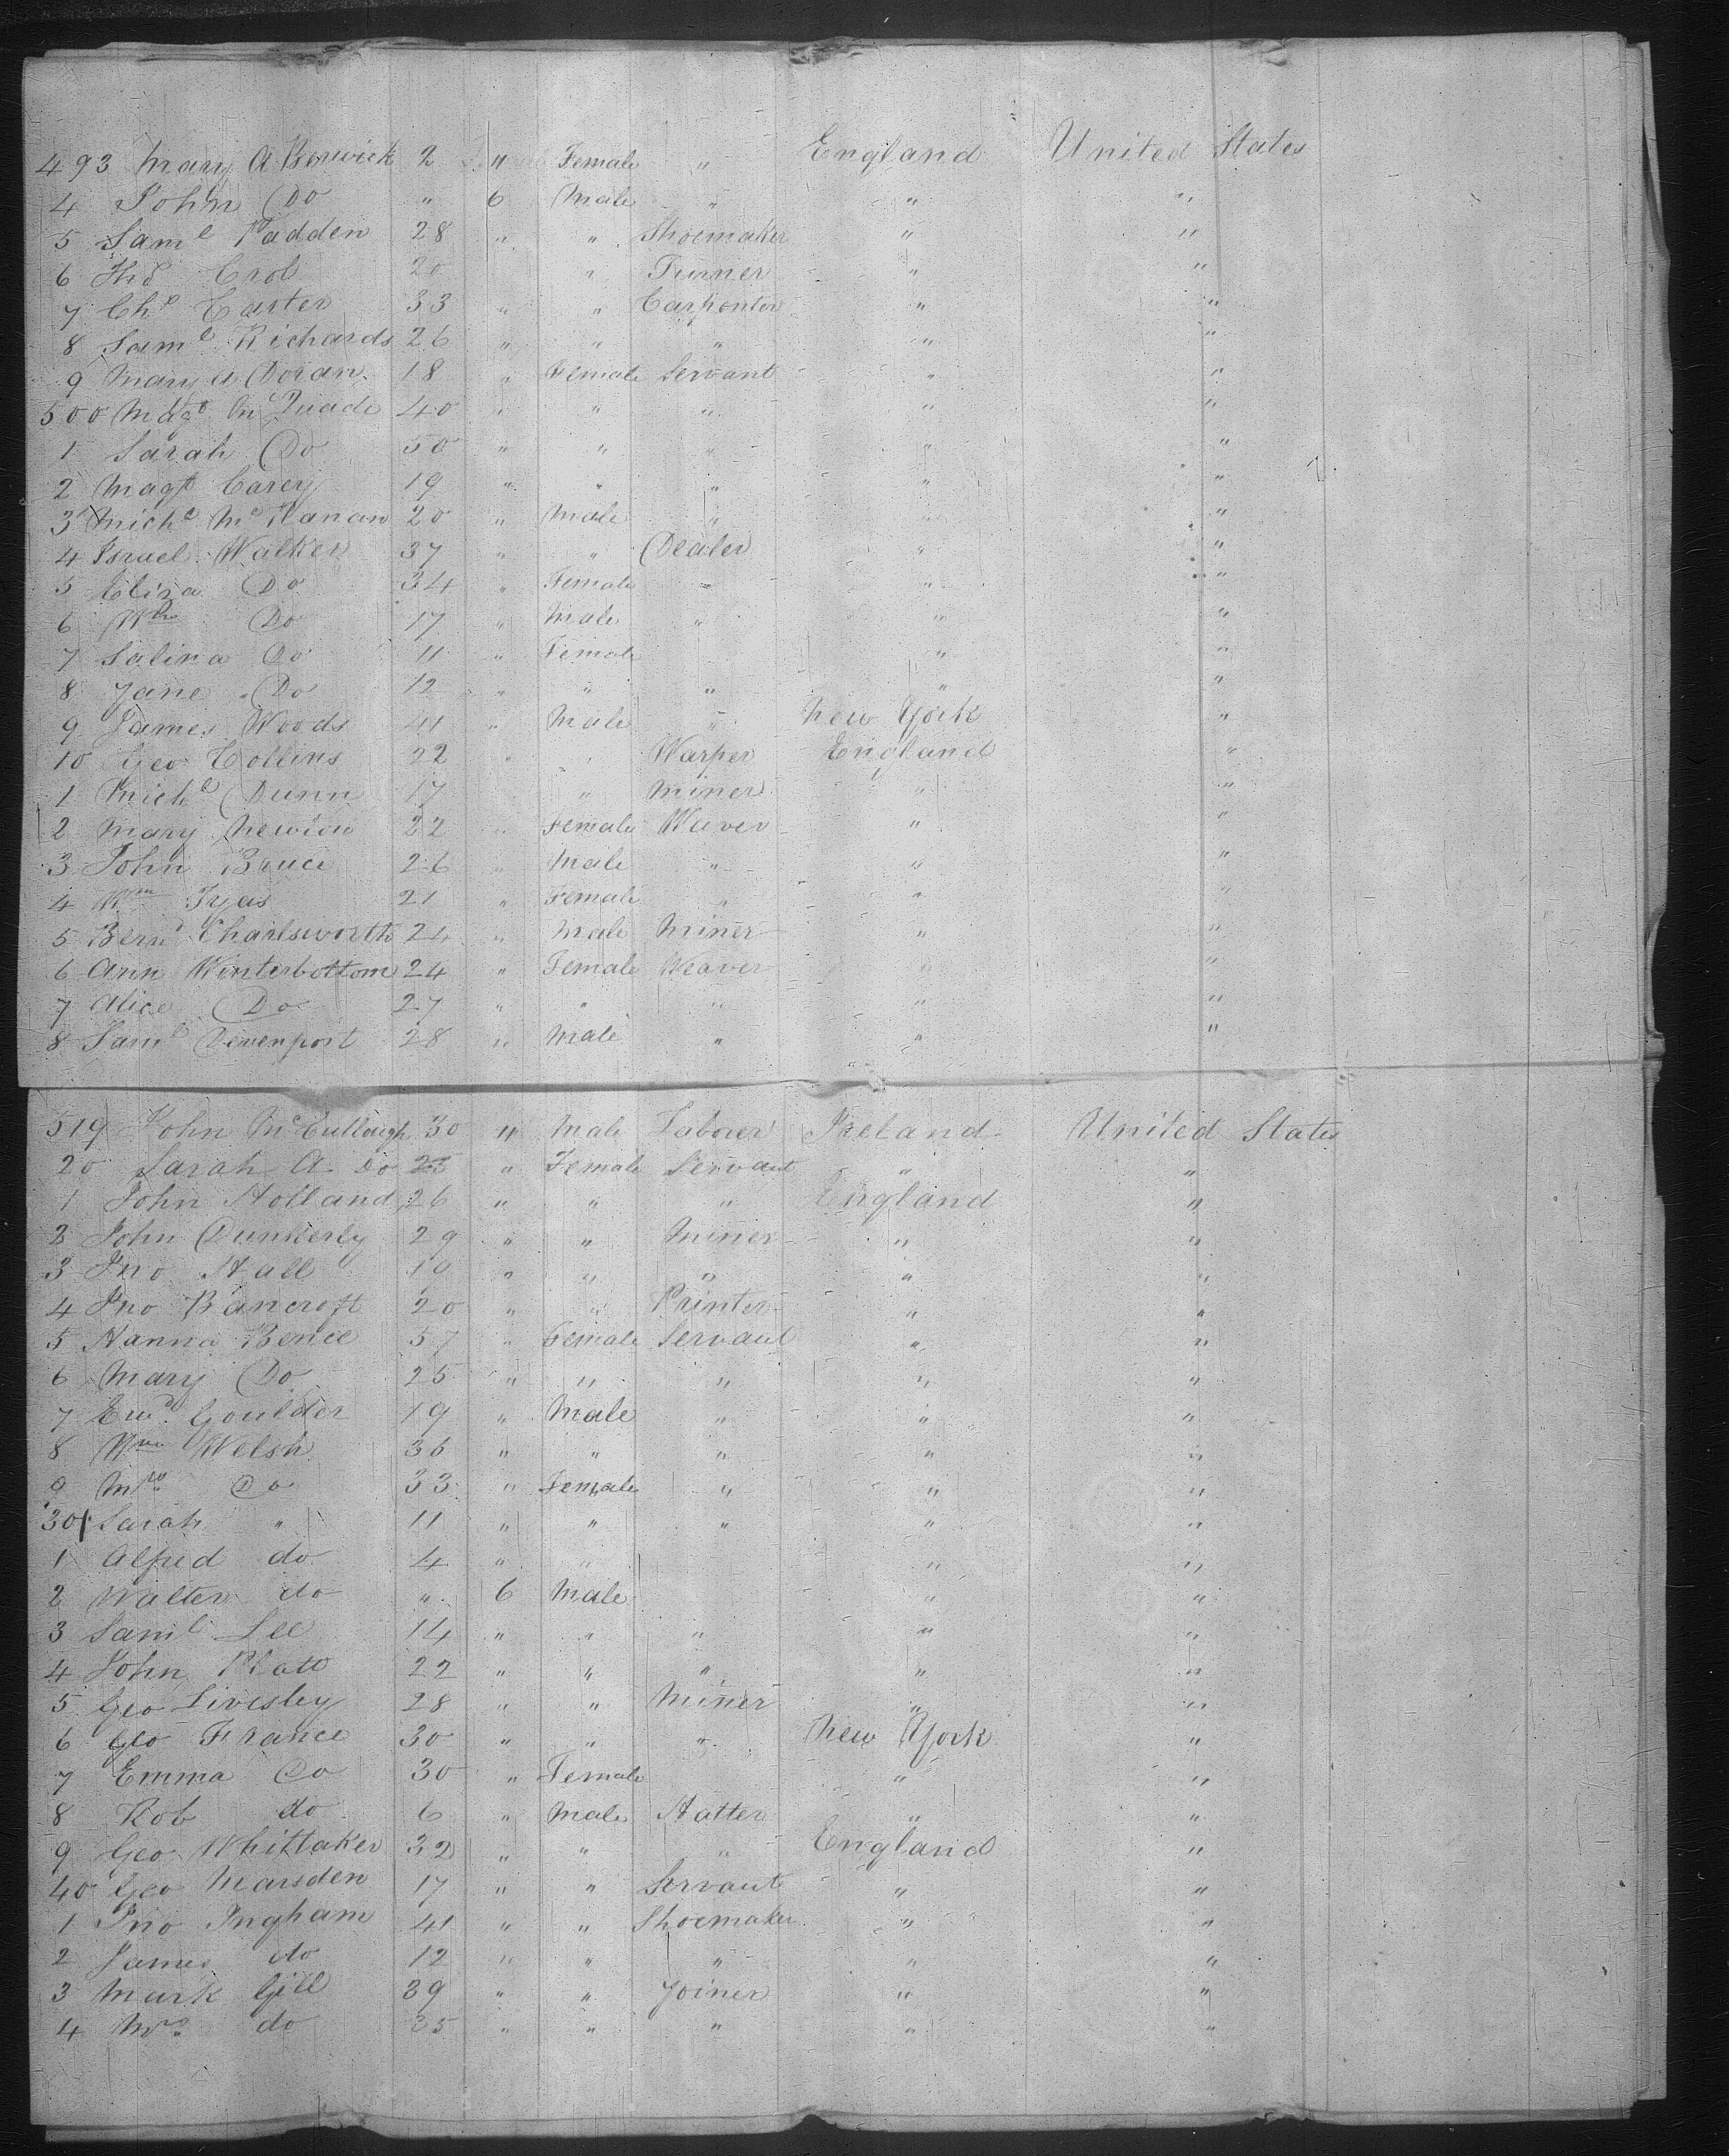 493 Mary A Berwick 2 " Female " England United States
4 John Do " 6 Male " " "
5 Saml Padden 28 " " Shoemaker " "
6 20 " " "
7 Chs Carter 33 " " Carpenter " "
8 Saml Richards 26 " " " " "
9 Mary A Doran 18 " Female Servant " "
500 Magt Mc Quade 40 " " " " "
1 Sarah Do 50 " " " " "
2 Magt Carey 19 " " " " "
3 Michl Mc 20 " Male " " "
4 Israel Walker 37 " " Dealer " "
5 Eliza Do 34 " Female " " "
6 Wm Do 17 " Male " " "
7 Salina Do 11 " Female " "
8 Jane Do 12 " " " " "
9 James Woods 41 " Male " New York "
10 Geo Collins 22 " " Warper England "
1 Michl Dunn 17 " Miner " "
2 Mary 22 " Female Weaver " "
3 John Bruce 26 " Male " " "
4 Wm Tyas 21 " Female " " "
5 Bend Charlsworth 24 " Male Miner " "
6 Ann Winterbottom 24 " Female Weaver " "
7 Alice Do 27 " " " " "
8 Saml Devenport 28 " Male " " "
519 John Mc Cullough 30 " Male Laborer Ireland United States
20 Sarah A Do 23 " Female Servant " "
1 John Holland 26 " " " England "
2 John Dunkerly 29 " " Miner " "
3 Jno Hall " " " " "
4 Jno Bancroft 20 " " Printer " "
5 Hanna Bence 57 " Female Servant " "
6 Mary Do 25 " " " " "
7 Ewd Goulder 19 " Male " " "
8 Wm Welsh 36 " " " " "
9 Mrs Do 33 " Female " " "
30 Sarah " 11 " " " " "
1 Alfred do 4 " " " "
2 Walter do " 6 Male " "
3 Saml Lee 14 " " " " "
4 John Platt 22 " " " " "
5 Geo Livesley 28 " " Miner " "
6 Geo France 30 " " " New York "
7 Emma Do 30 " Female " "
8 Rob do 6 " Male Hatter " "
9 Geo Whittaker 32 " " " England "
40 Geo Marsden 17 " " Servant " "
1 Jno Ingham 41 " " Shoemaker " "
2 James do 12 " " " " "
3 Mark Gill 39 " " Joiner " "
4 Mrs do 35 " " " " "